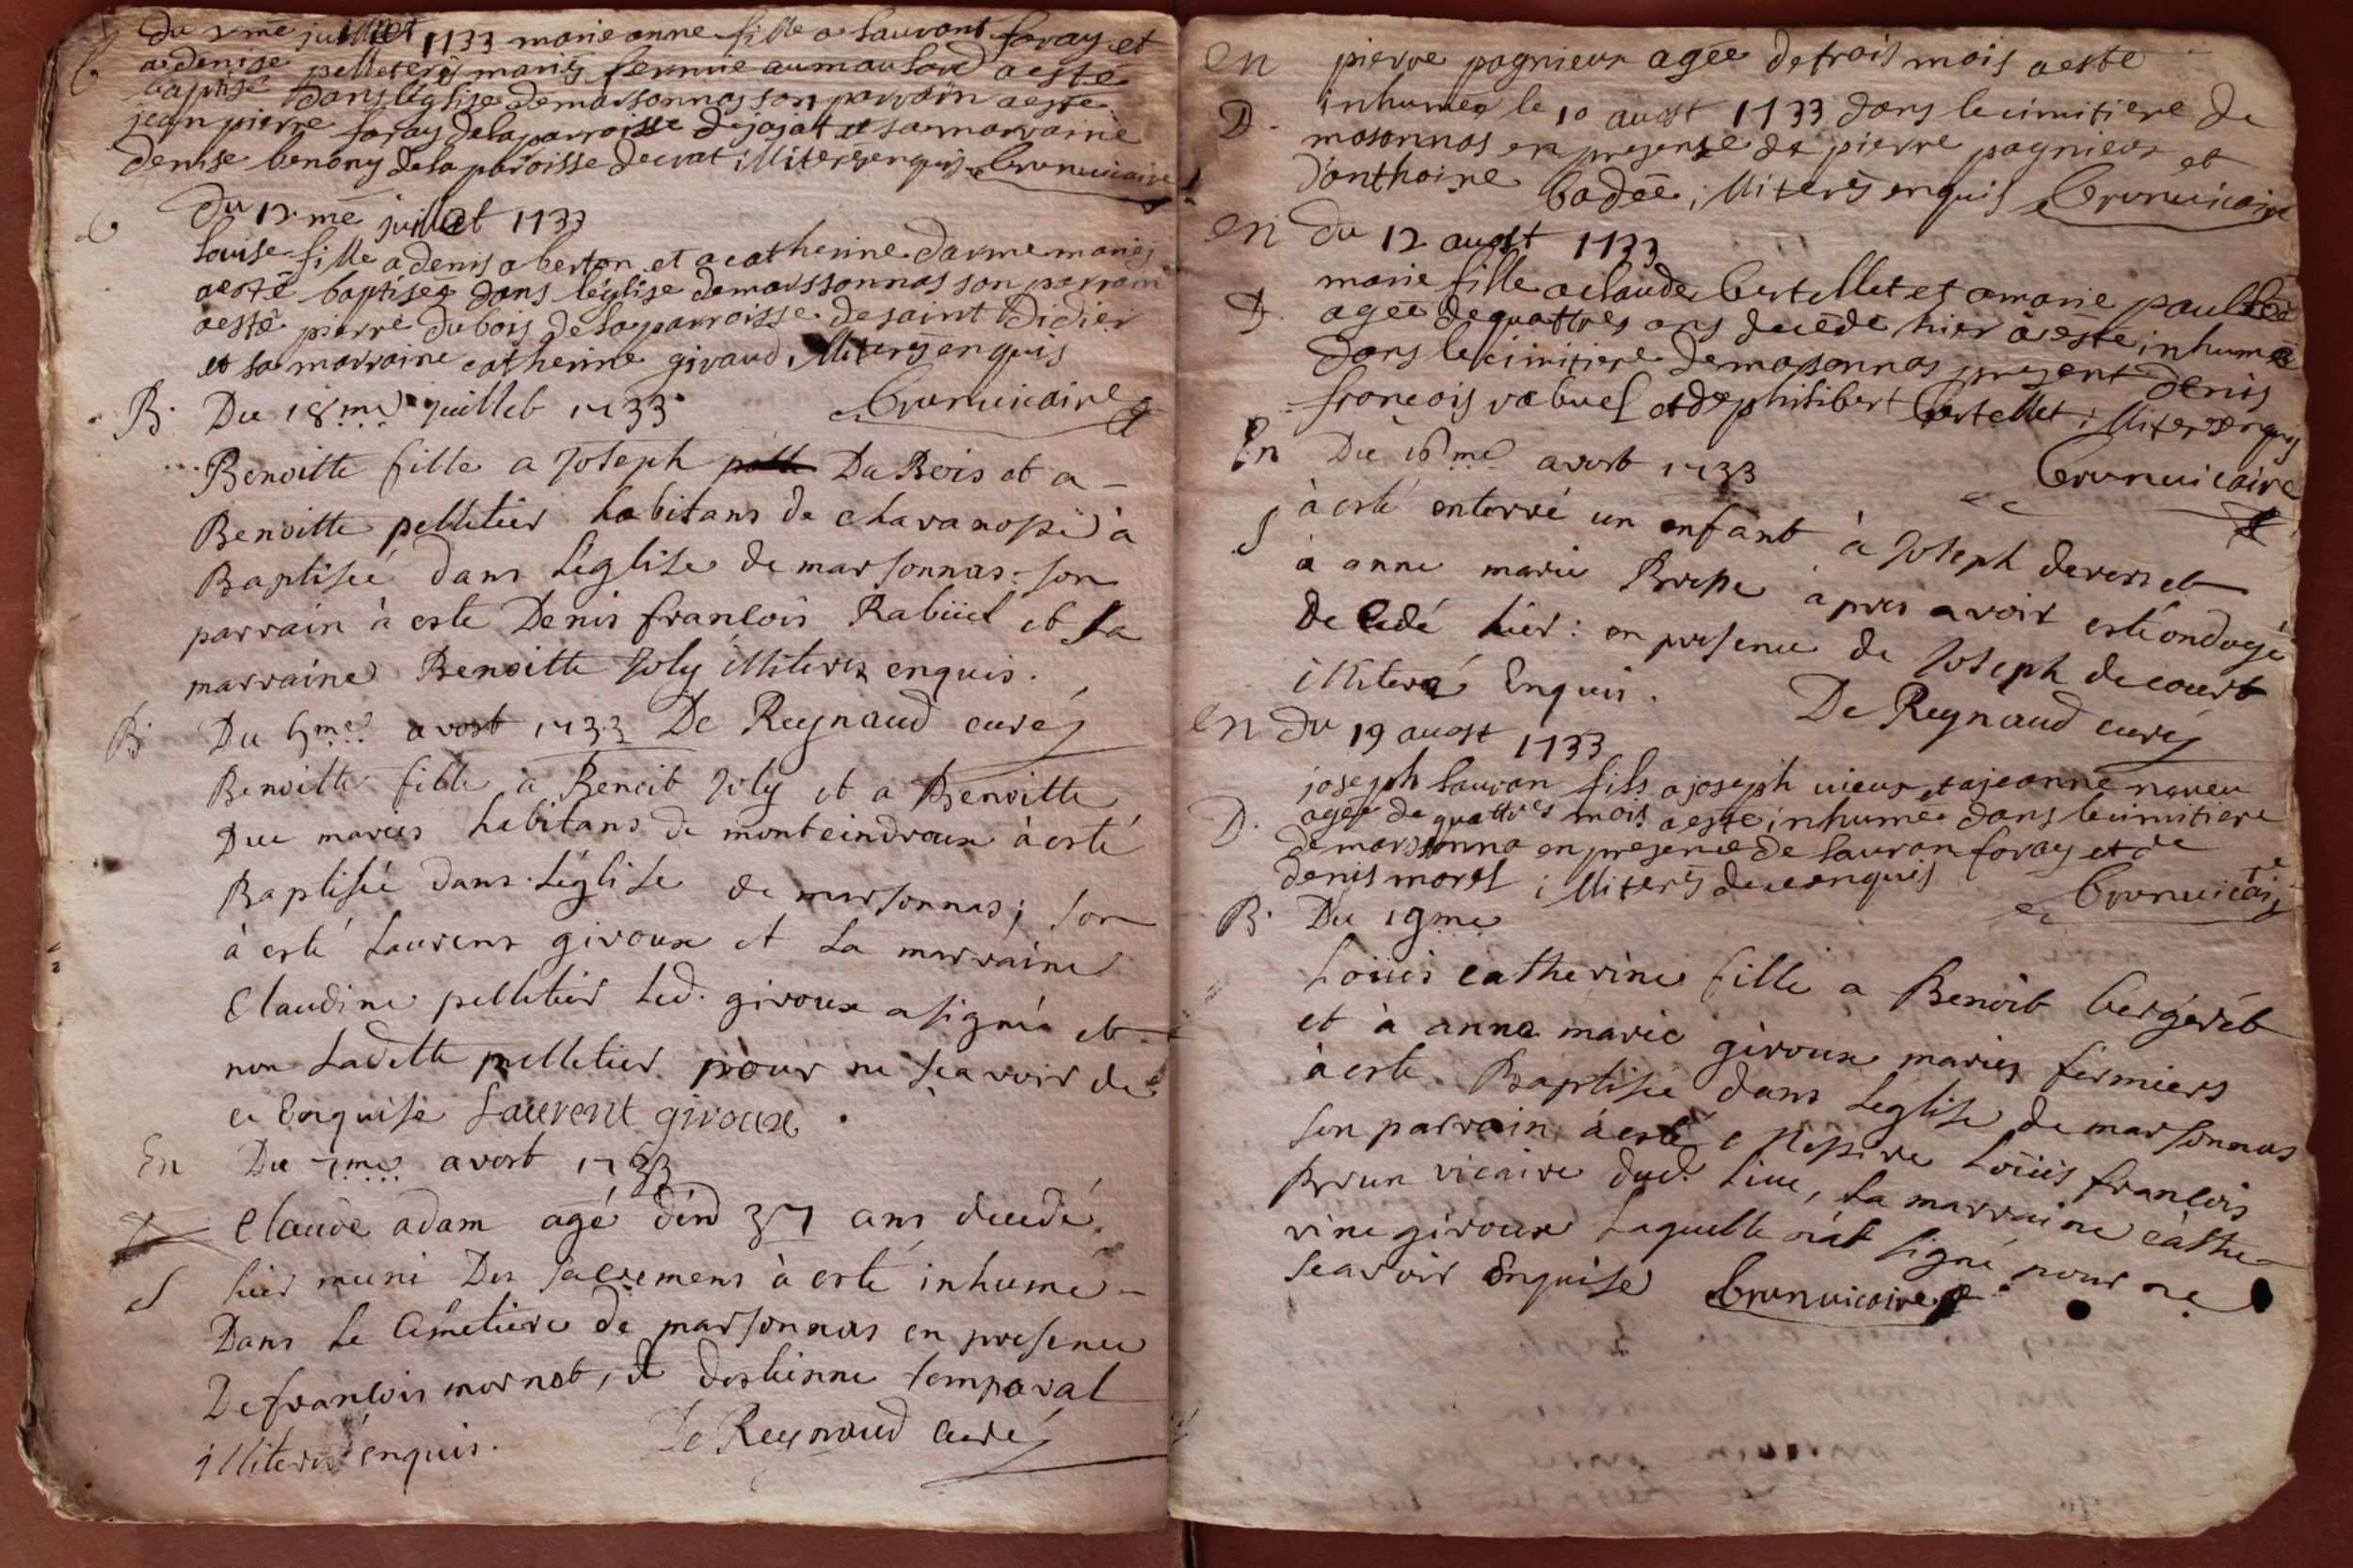 Du 2 me juillet 1733 marie anne fille a laurant foray et
a denise pelleterÿ mariés fermie au
baptisé dans léglise de marsonnas son parrain aesté
jean pierre foray de la parroisse de jajat et sa marraine
denise benony de la paroisse de crat illiterés enquis brun vicaire
b
Du 12 me juillet 1733
b
Louise fille a denis oberton et a catherine darme mariés
aestè baptisez dans léglise de marssonnas son parrain
aestè pierre dubois de la parroisse de saint Didier
et sa marraine catherine giraud illiterés enquis
B. Du 18me juillet 1733 brun vicaire
Benoitte fille a Joseph Du Bois et a
Benoitte pelletier habitans de chavanosse à
Baptisée dans Léglise de marsonnas : son
parrain à esté Denis francois Rabüel et sa
marraine Benoitte Joly illiterez enquis.
B. Du 5me avost 1733 De Reynaud curé
Benoitte fille a Benoit Joly et a Benoitte
Duc mariés habitans de monteindroux à esté
Baptisée dans Léglise de marsonnas ; son
à esté Laurens giroux et La marraine
Claudine pelletier Led. giroux a signé et
non Laditte pelletier pour ne sçavoir de
ce Enquise Laurent giroux.
En Du 7me avost 1733
Claude adam agé dénd 37 ans decedé
hier muni Des sacremens à esté inhumé
S
Dans Le Cimetiere de marsonnas en presence
De francois mornat, et destienne temporal
illiteré enquis. De Reynaud Curé
en pierre pagnieux agée de trois mois aeste
D. inhumée le 10 auost 1733 dans le cimitiere de
masonnas en presense de pierre pagnieux et
danthoine badée, illiterés enquis brun vicaire
en du 12 auost 1733
marie fille a claude bertellet et a marie
D. agée de quattres ans decédé hier à esté inhumée
dans le cimitiere de masonnas present denis
francois rabuel et de philibert bertellet illiterés enquis
En Du 16me avost 1733 brun vicaire
S à esté enterré un enfant à Joseph deveret
à anne marie Brosse apres avoir esté ondoyé
decedé hier : en presence de Joseph decourt
illiteré Enquis. De Reynaud curé
en du 19 auost 1733
joseph lauran fils a joseph vieux et a jeanne naveu
D. agée de quattres mois aesté inhumée dans le cimitiere
de marssonna en presence de lauran foray et de
denis morel illiterés de ce enquis brun vicaire
B. Du 19me
Loüis catherine fille a Benoit bergerét
et à anna marie giroux mariés fermiers
à esté Baptisée dans Leglise de marsonnas
son parrain à esté Messire Loüis francois
Brun vicaire dud. Lieu, La marraine cathe-
rine giroux Laquelle n'at signé pour ne
sçavoir Enquise brun vicaire